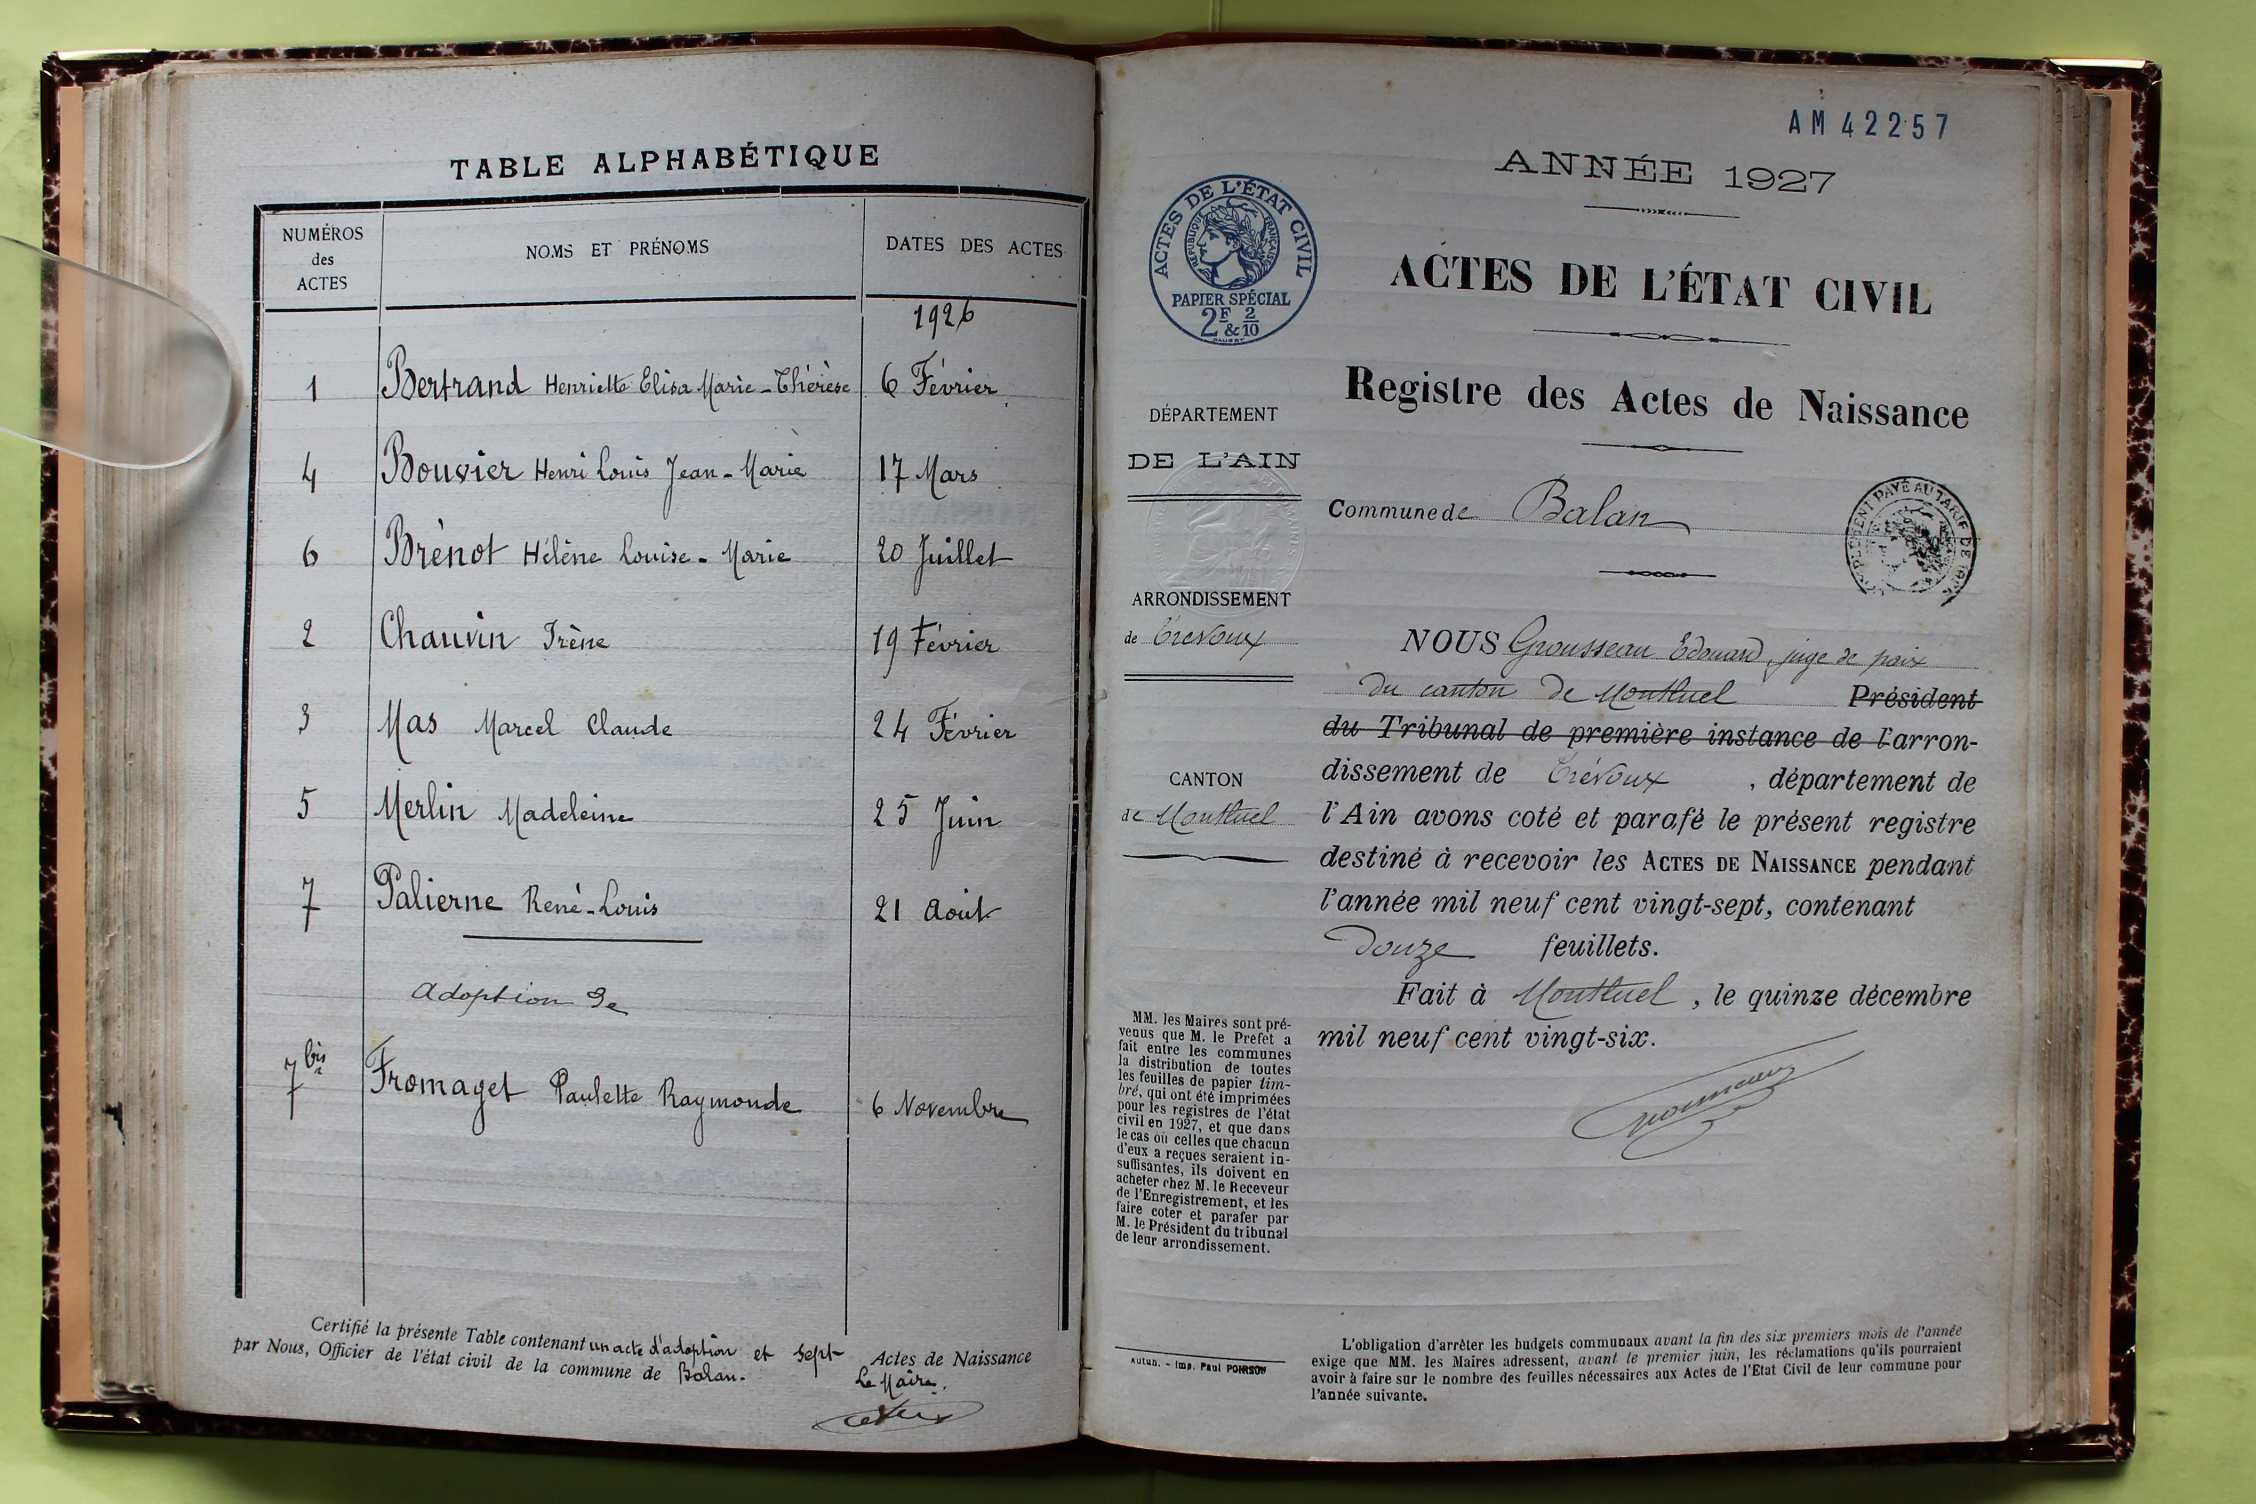 TABLE ALPHABÉTIQUE
NUMÉROS des ACTES
NOMS ET PRÉNOMS
DATES DES ACTES
1926
1 Bertrand Henriette Elisa Marie-Thérèse 6 Février
4 Bouvier Henri Louis Jean-Marie 17 Mars
6 Brènot Hélène Louise-Marie 20 Juillet
2 Chauvin Irène 19 Février
3 Mas Marcel Claude 24 Février
5 Merlin Madeleine 25 Juin
7 Palierne René-Louis 21 Aout
Adoption de
7 bis Fromaget Paulette Raymonde 6 Novembre
Certifié la présente Table contenant un acte d'adoption et sept Actes de Naissance
par Nous, Officier de l'état civil de la commune de Balan.
Le Maire,
AM 42257
ANNÉE 1927
ACTES DE L'ÉTAT CIVIL
RÉPUBLIQUE FRANÇAISE
PAPIER SPÉCIAL
2F & 2/10
ACTES DE L'ÉTAT CIVIL
Registre des Actes de Naissance
DÉPARTEMENT
DE L'AIN
Commune de Balan
ARRONDISSEMENT
de Trévoux
CANTON
de Montluel
NOUS Grousseau Edouard, juge de paix
du canton de Montluel Président
du Tribunal de première instance de l'arron-
dissement de Trévoux, département de
l'Ain avons coté et parafé le présent registre
destiné à recevoir les ACTES DE NAISSANCE pendant
l'année mil neuf cent vingt-sept, contenant
Douze feuillets.
Fait à Montluel, le quinze décembre
mil neuf cent vingt-six.
MM. les Maires sont pré-
venus que M. le Prefet a
fait entre les communes
la distribution de toutes
les feuilles de papier tim-
bré, qui ont été imprimées
pour les registres de l'état
civil en 1927, et que dans
le cas où celles que chacun
d'eux a reçues seraient in-
suffisantes, ils doivent en
acheter chez M. le Receveur
de l'Enregistrement, et les
faire coter et parafer par
M. le Président du tribunal
de leur arrondissement.
Autun. - Imp. Paul POIRSON
L'obligation d'arrêter les budgets communaux avant la fin des six premiers mois de l'année
exige que MM. les Maires adressent, avant le premier juin, les réclamations qu'ils pourraient
avoir à faire sur le nombre des feuilles nécessaires aux Actes de l'Etat Civil de leur commune pour
l'année suivante.